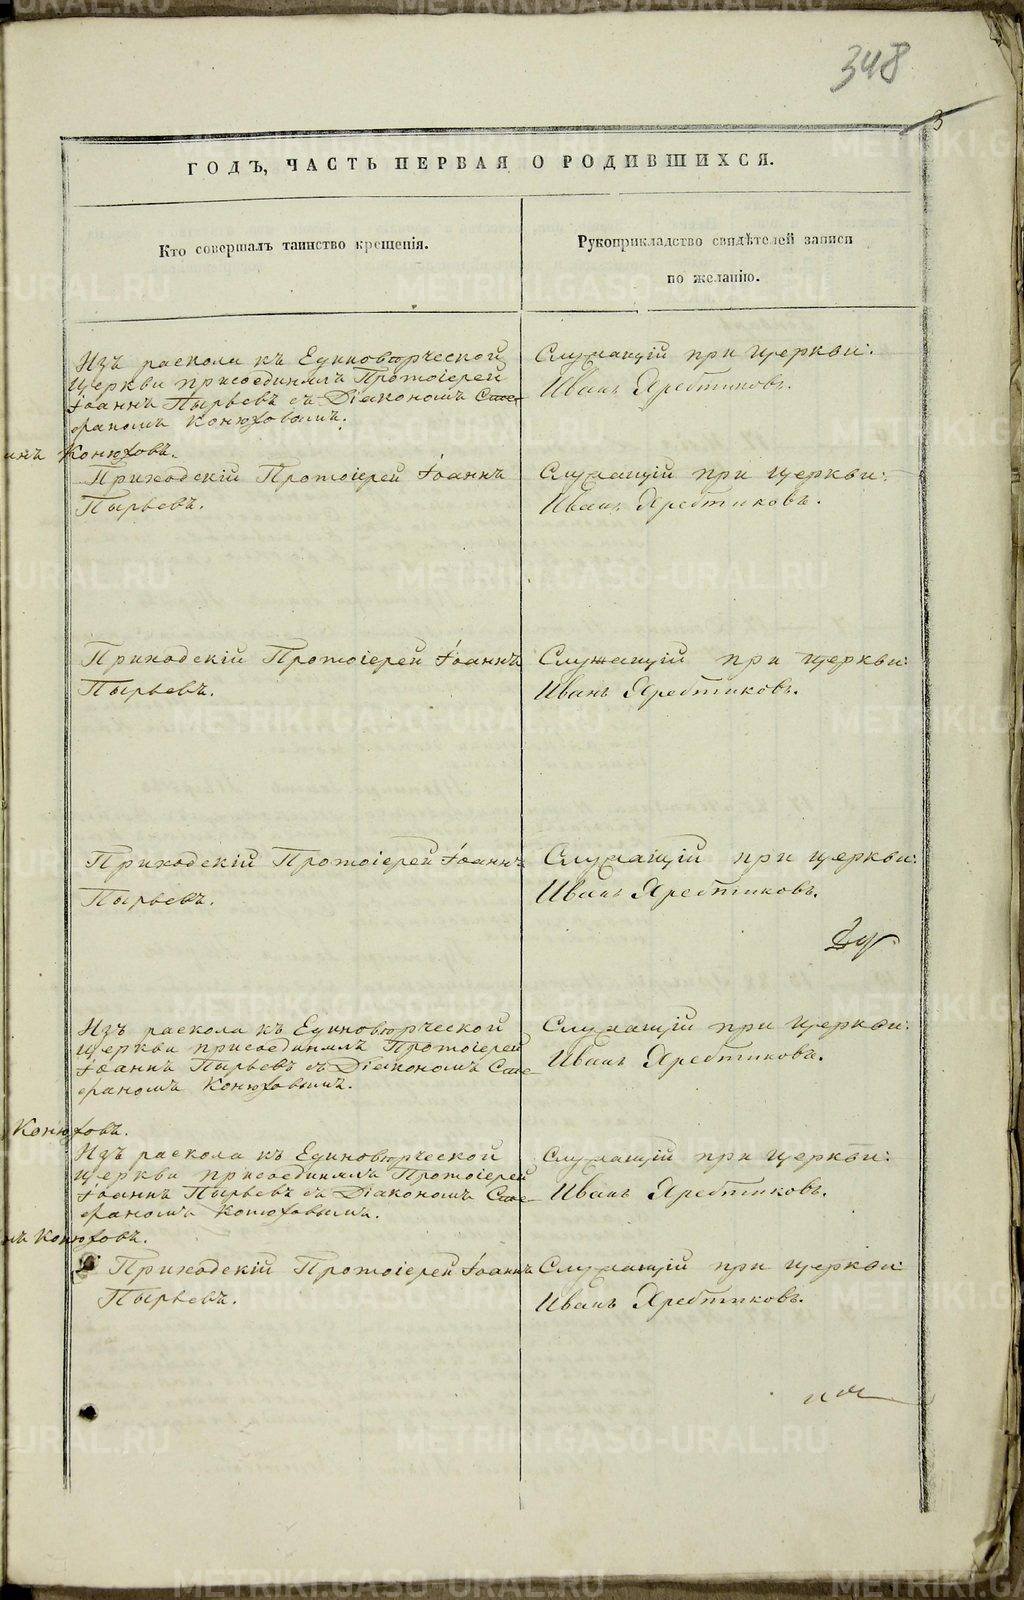 348
3
ГОДЪ, ЧАСТЬ ПЕРВАЯ О РОДИВШИХСЯ.
Кто совершалъ таинство крещенія.
Рукоприкладство свидѣтелей записи
по желанію.
Изъ раскола къ Единовѣрческой
церкви присоединялъ Протоіерей
Іоаннъ Пырьевъ съ Діакономъ Сте-
фаномъ Конюховымъ.
Служащій при церкви:
Иванъ Яребтиковъ.
Конюховъ.
Приходскій Протоіерей Іоаннъ
Пырьевъ.
Служащій при церкви:
Иванъ Яребтиковъ.
Приходскій Протоіерей Іоаннъ
Пырьевъ.
Служащій при церкви:
Иванъ Яребтиковъ.
Приходскій Протоіерей Іоаннъ
Пырьевъ.
Служащій при церкви:
Иванъ Яребтиковъ.
Изъ раскола къ Единовѣрческой
церкви присоединялъ Протоіерей
Іоаннъ Пырьевъ съ Діакономъ Сте-
фаномъ Конюховымъ.
Служащій при церкви:
Иванъ Яребтиковъ.
Конюховъ.
Изъ раскола къ Единовѣрческой
церкви присоединялъ Протоіерей
Іоаннъ Пырьевъ съ Діакономъ Сте-
фаномъ Конюховымъ.
Служащій при церкви:
Иванъ Яребтиковъ.
Конюховъ.
Приходскій Протоіерей Іоаннъ
Пырьевъ.
Служащій при церкви
Иванъ Яребтиковъ.
METRIKI.GASO-URAL.RU